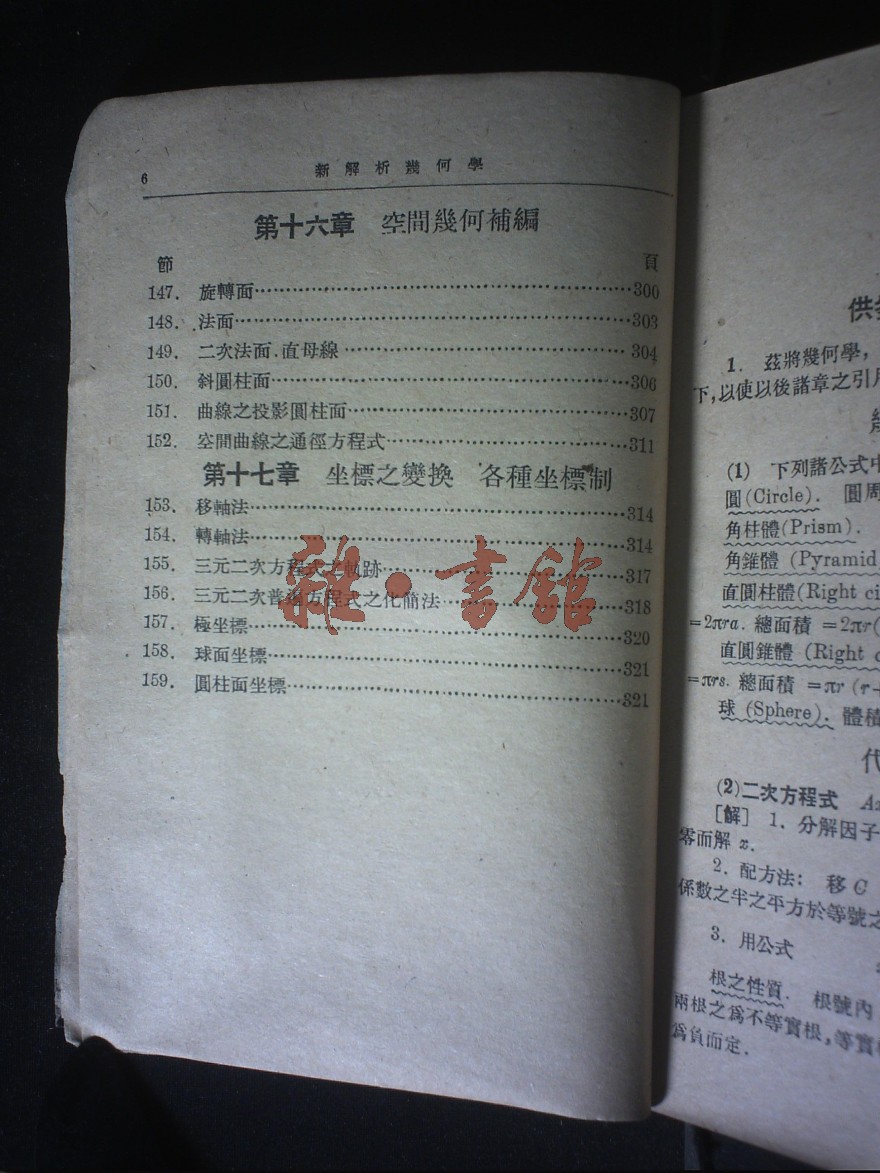 6 新解析幾何學
第十六章 空間幾何補編
節 頁
147. 旋轉面……300
148. 法面……303
149. 二次法面.直母線……304
150. 斜圓柱面……306
151. 曲線之投影圓柱面……307
152. 空間曲線之通徑方程式……311
第十七章 坐標之變換 各種坐標制
153. 移軸法……314
154. 轉軸法……314
155. 三元二次方程式之軌跡……317
156. 三元二次普遍方程式之化簡法……318
157. 極坐標……320
158. 球面坐標……321
159. 圓柱面坐標……321
雜·書館
供
1. 茲將幾何學,
下,以使以後諸章之引用
(1) 下列諸公式中
圓(Circle). 圓周
角柱體(Prism).
角錐體 (Pyramid
直圓柱體(Right ci
=2πra. 總面積 =2πr(
直圓錐體 (Right c
=πrs. 總面積 =πr (r+
球 (Sphere). 體積
代
(2)二次方程式 Ax
[解] 1. 分解因子
零而解 x.
2. 配方法: 移 C
係數之半之平方於等號之
3. 用公式
根之性質. 根號內
兩根之爲不等實根,等實
爲負而定.